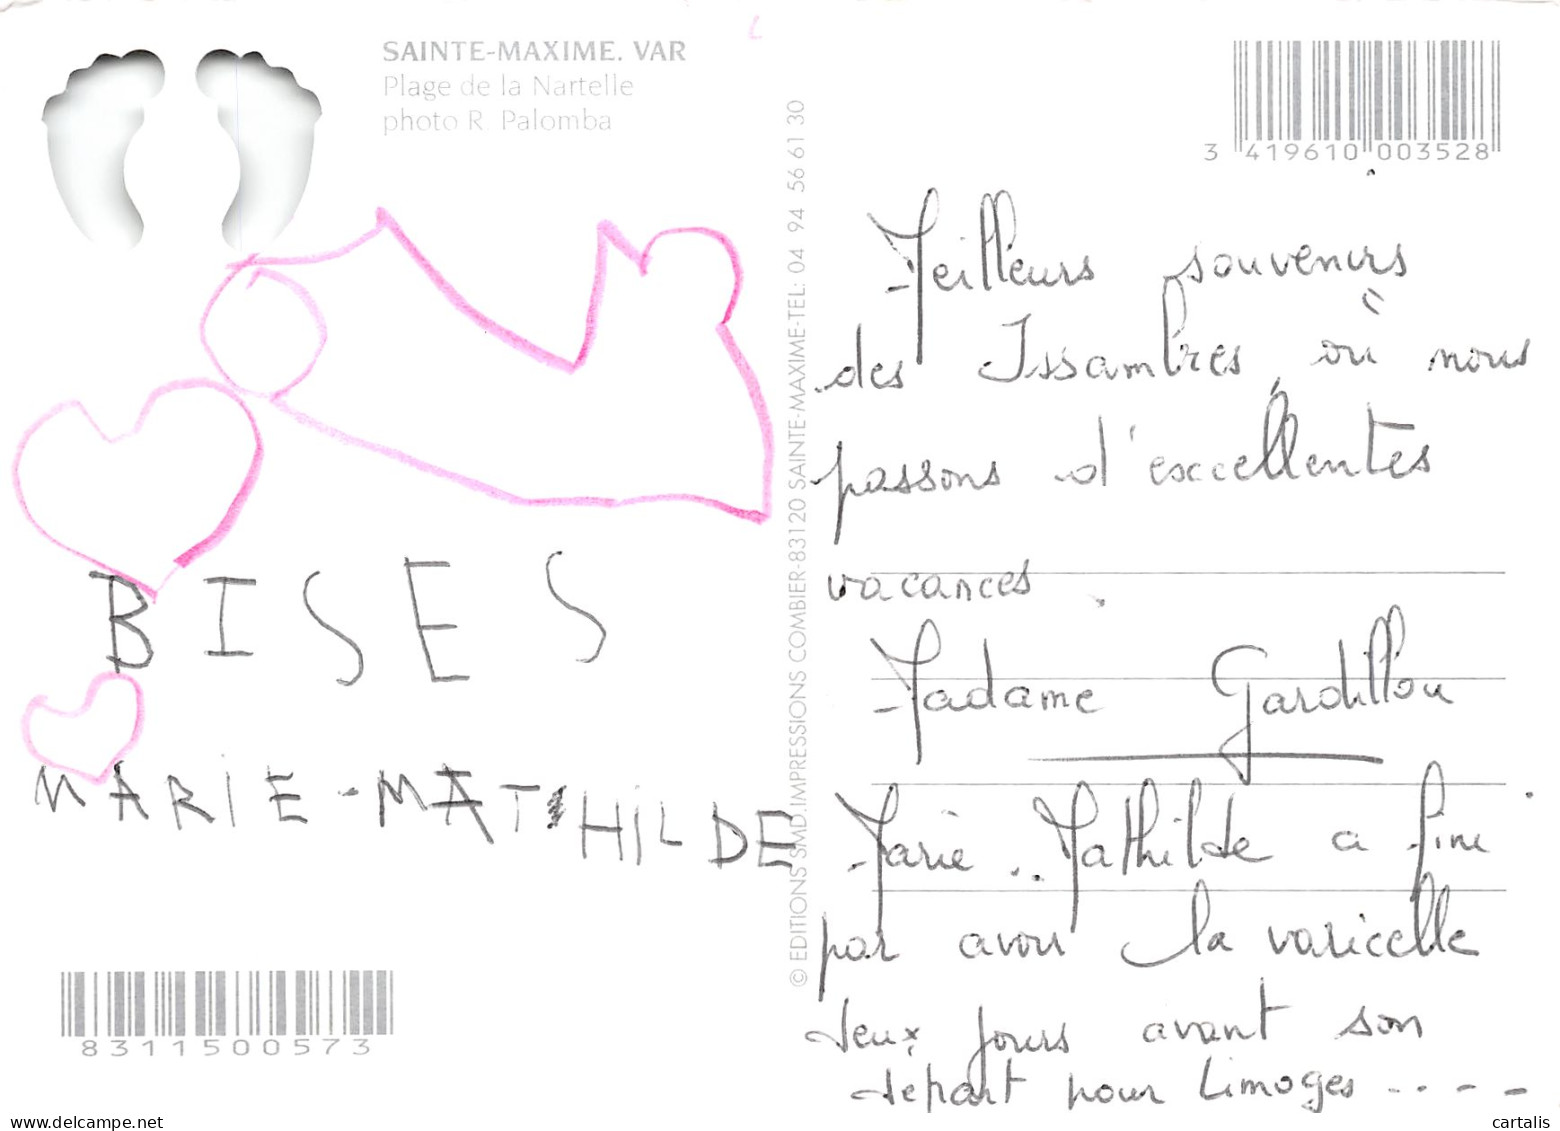 SAINTE-MAXIME. VAR
Plage de la Nartelle
photo R. Palomba
BISES
MARIE-MATHILDE
83111500573
© EDITIONS SMD.IMPRESSIONS COMBIER-83120 SAINTE-MAXIME-TEL: 04 94 56 61 30
3 419610 003528
Meilleurs souvenirs
des Issambres, où nous
passons d'excellentes
vacances.
Madame Gardillou
Marie-Mathilde a fini
par avoir la varicelle
deux jours avant son
départ pour Limoges ....
delcampe.net
cartalis